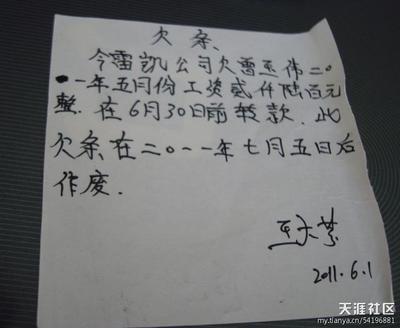 欠条
今雷凯公司欠曾玉伟二0
一一年五月份工资贰仟陆百元
整. 在6月30日前转款. 此
欠条在二0一一年七月五日后
作废.
2011.6.1
天涯社区
my.tianya.cn/54196881